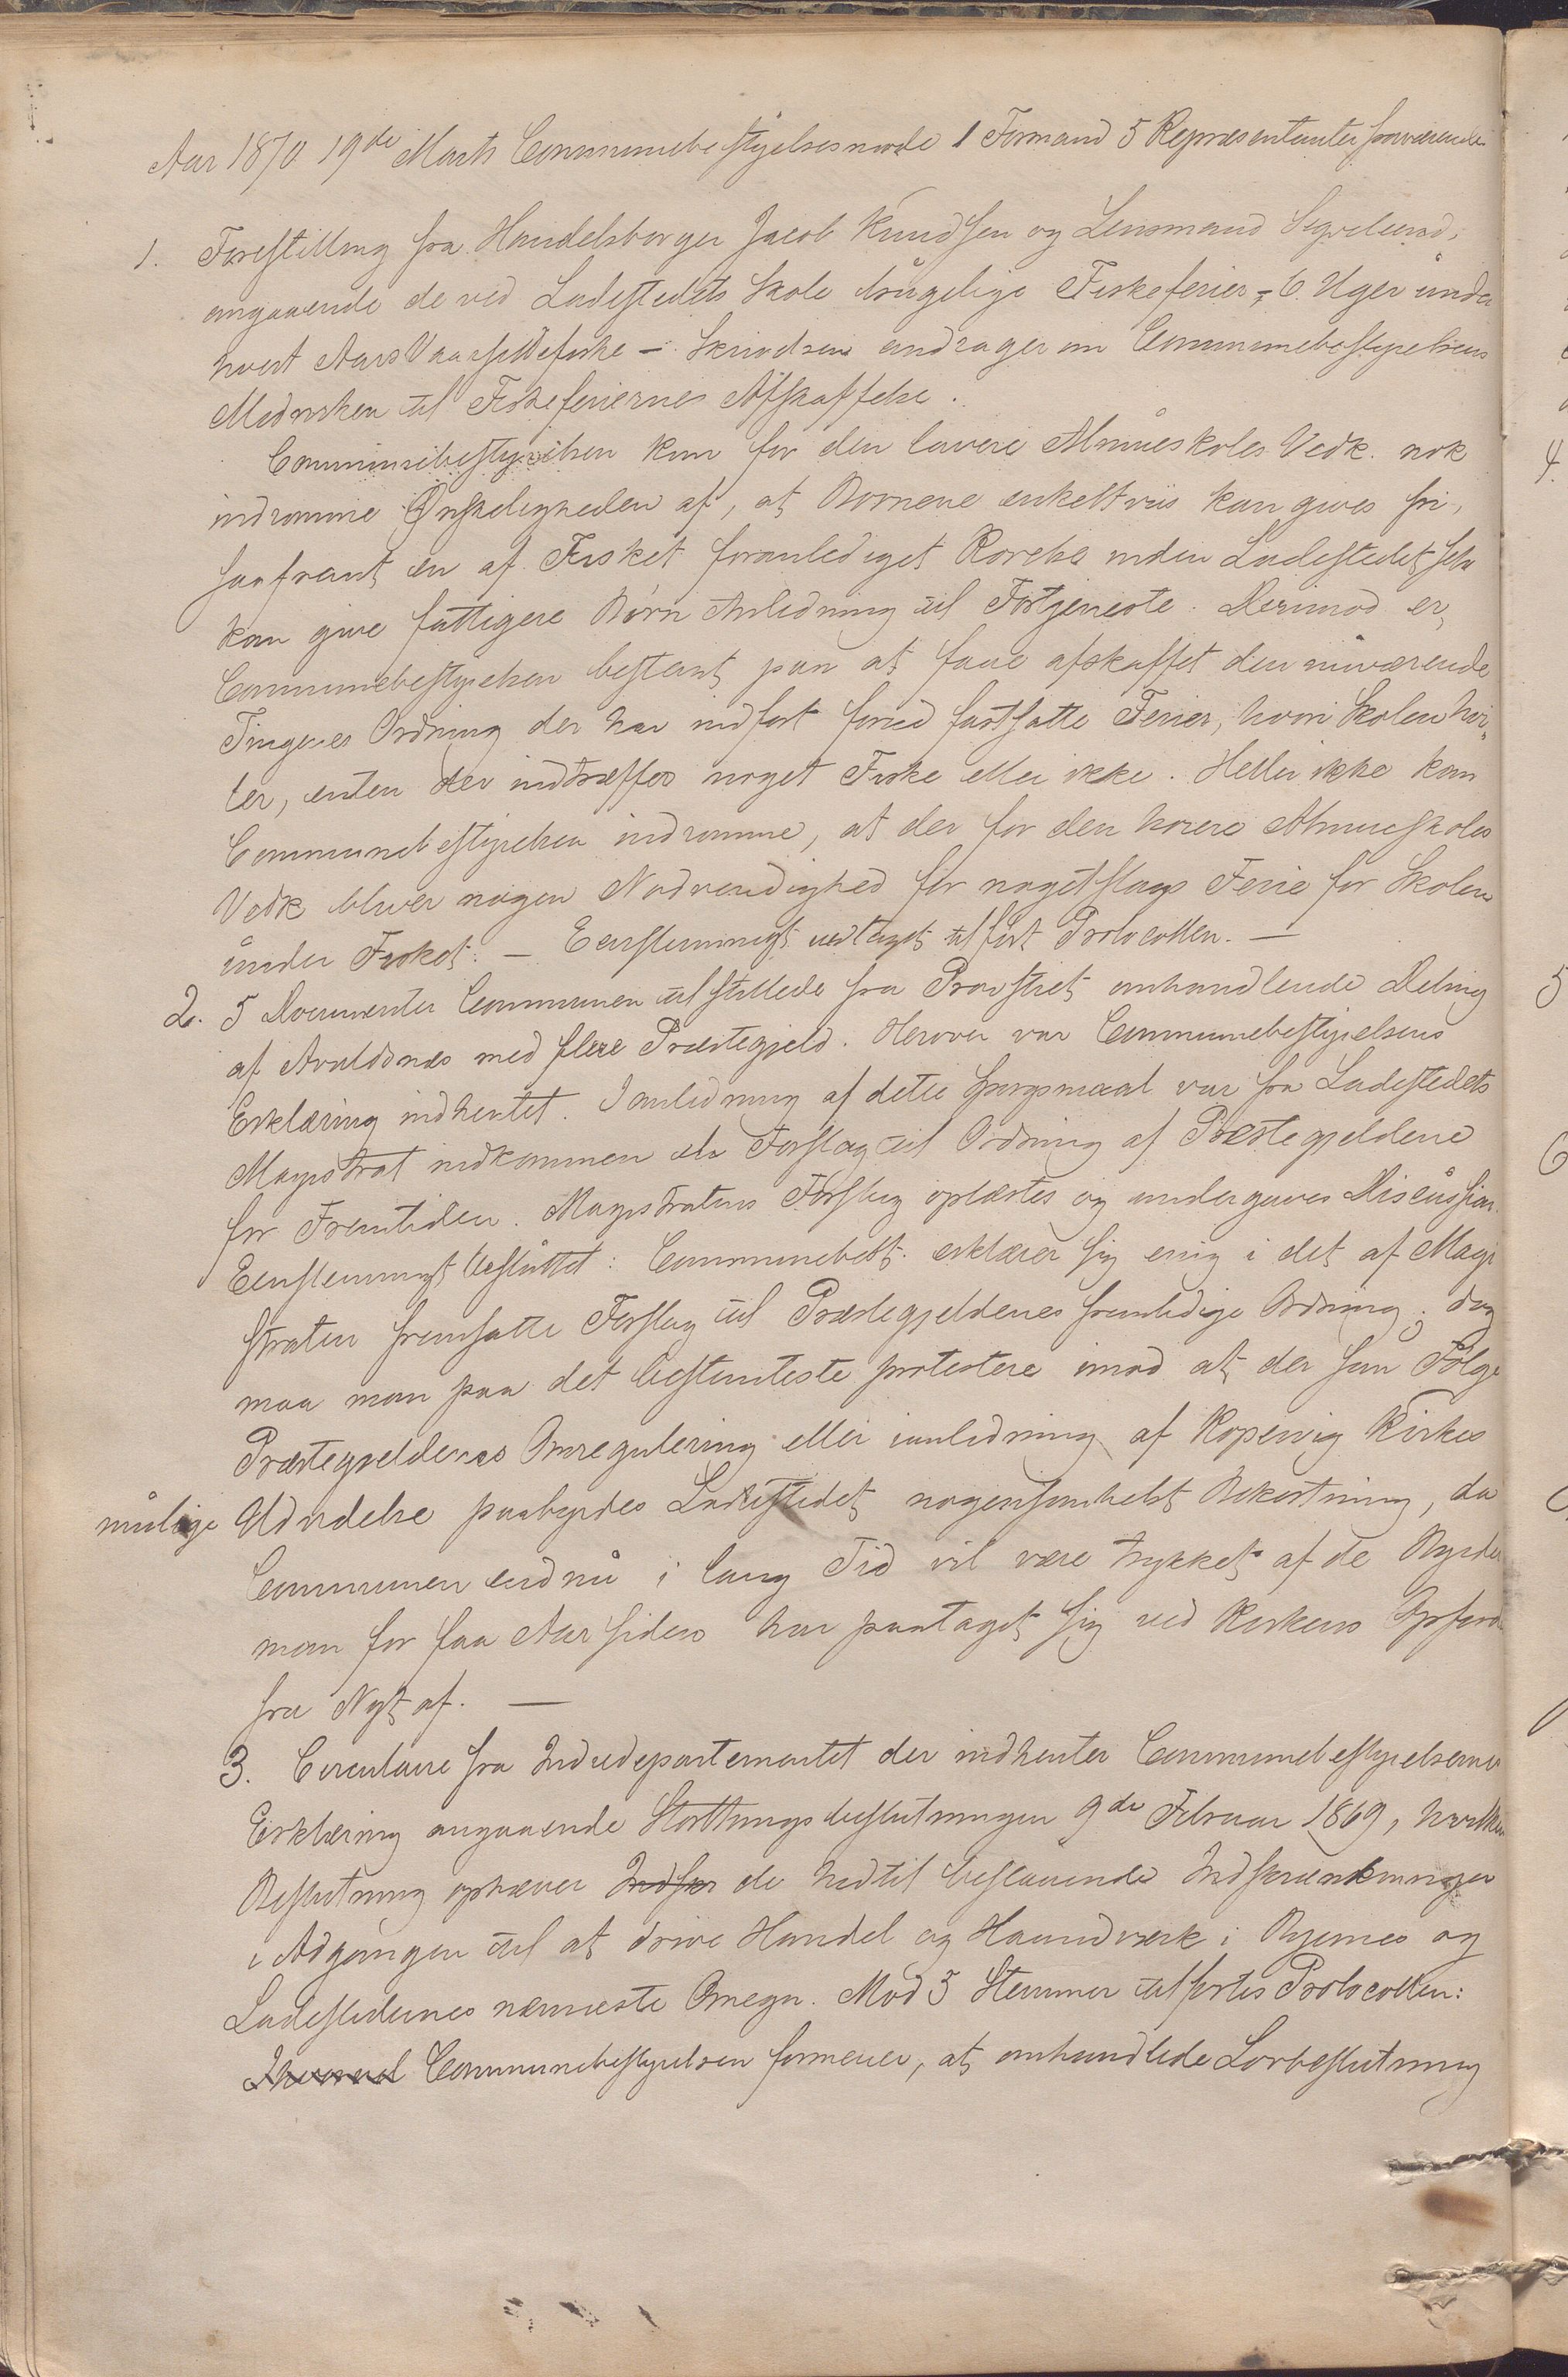 Aar 1870 19de Marts Communebestyrelsesmøde 1 Formand 5 Repræsentanter forværende
1. Forestilling fra Handelsborger Jacob Knudsen og Lensmand
angaaende de ved Ladestedets Skole brugelige Fiskeferier, 6 Uger under
hvert Aars Vaarsildefiske – andrager om Communebestyrelsens
Medvirken til Fiskeferiernes Afskaffelse.
Communebestyrelsen kan for den lavere Almueskoles Vedk. nok
indrømme Ønskeligheden af, at Børnene enkeltviis kan gives fri,
saafremt en af Fisket foranlediget Rørelse inden Ladestedet selv
kan give fattigere Børn Anledning til Fortjeneste. Derimod er
Communebestyrelsen bestemt paa at faae afskaffet den nuværende
Tingenes Ordning der har indført forud fastsatte Ferier, hvori Skolen hvi-
ler, enten der indtræffer noget Fiske eller ikke. Heller ikke kan
Communebestyrelsen indrømme, at der for den høiere Almueskoles
Vedk bliver nogen Nødvendighed for nogetslags Ferie for Skolen
under Fisket. – Eenstemmigt vedtaget tilført Protocollen. –
2. 5 Documenter Communen tilstillede fra Provstiet omhandlende Deling
af Avaldsnes med flere Præstegjeld. Herover var Communebestyrelsens
Erklæring indhentet. I anledning af dette Spørgsmaal var fra Ladestedets
Magistrat indkommen et Forslag til Ordning af Præstegjeldene
for Fremtiden. Magistratens Forslag oplæstes og undergaves Discussion.
Eenstemmigt besluttet: Communebest. erklærer sig enig i det af Magi
straten fremsatte Forslag til Præstegjeldenes fremtidige Ordning; dog
maa man paa det bestemteste protestere imod at der som Følge
Præstegjeldenes Omregulering eller i anledning af Kopervig Kirkes
mulige Udvidelse paabyrdes Ladestedet nogensomhelst Bekostning, da
Communen endnu i lang Tid vil være trykket af de Byrder
man for faa Aar siden har paataget sig ved Kirkens Opførelse
fra Nyt af. –
3. Circulaire fra Indredepartementet der indhenter Communebestyrelsernes
Erklæring angaaende Storthingsbeslutningen 9de Februar 1869, hvilken
Beslutning ophæver Indskr de hidtil bestaaende Indskrænkninger
i Adgangen til at drive Handel og Haandværk i Byernes og
Ladestedernes nærmeste Omegn. Mod 3 Stemmer tilførtes Protocollen:
Communebestyrelsen formener, at omhandlede Lovbeslutning
4.
5
6